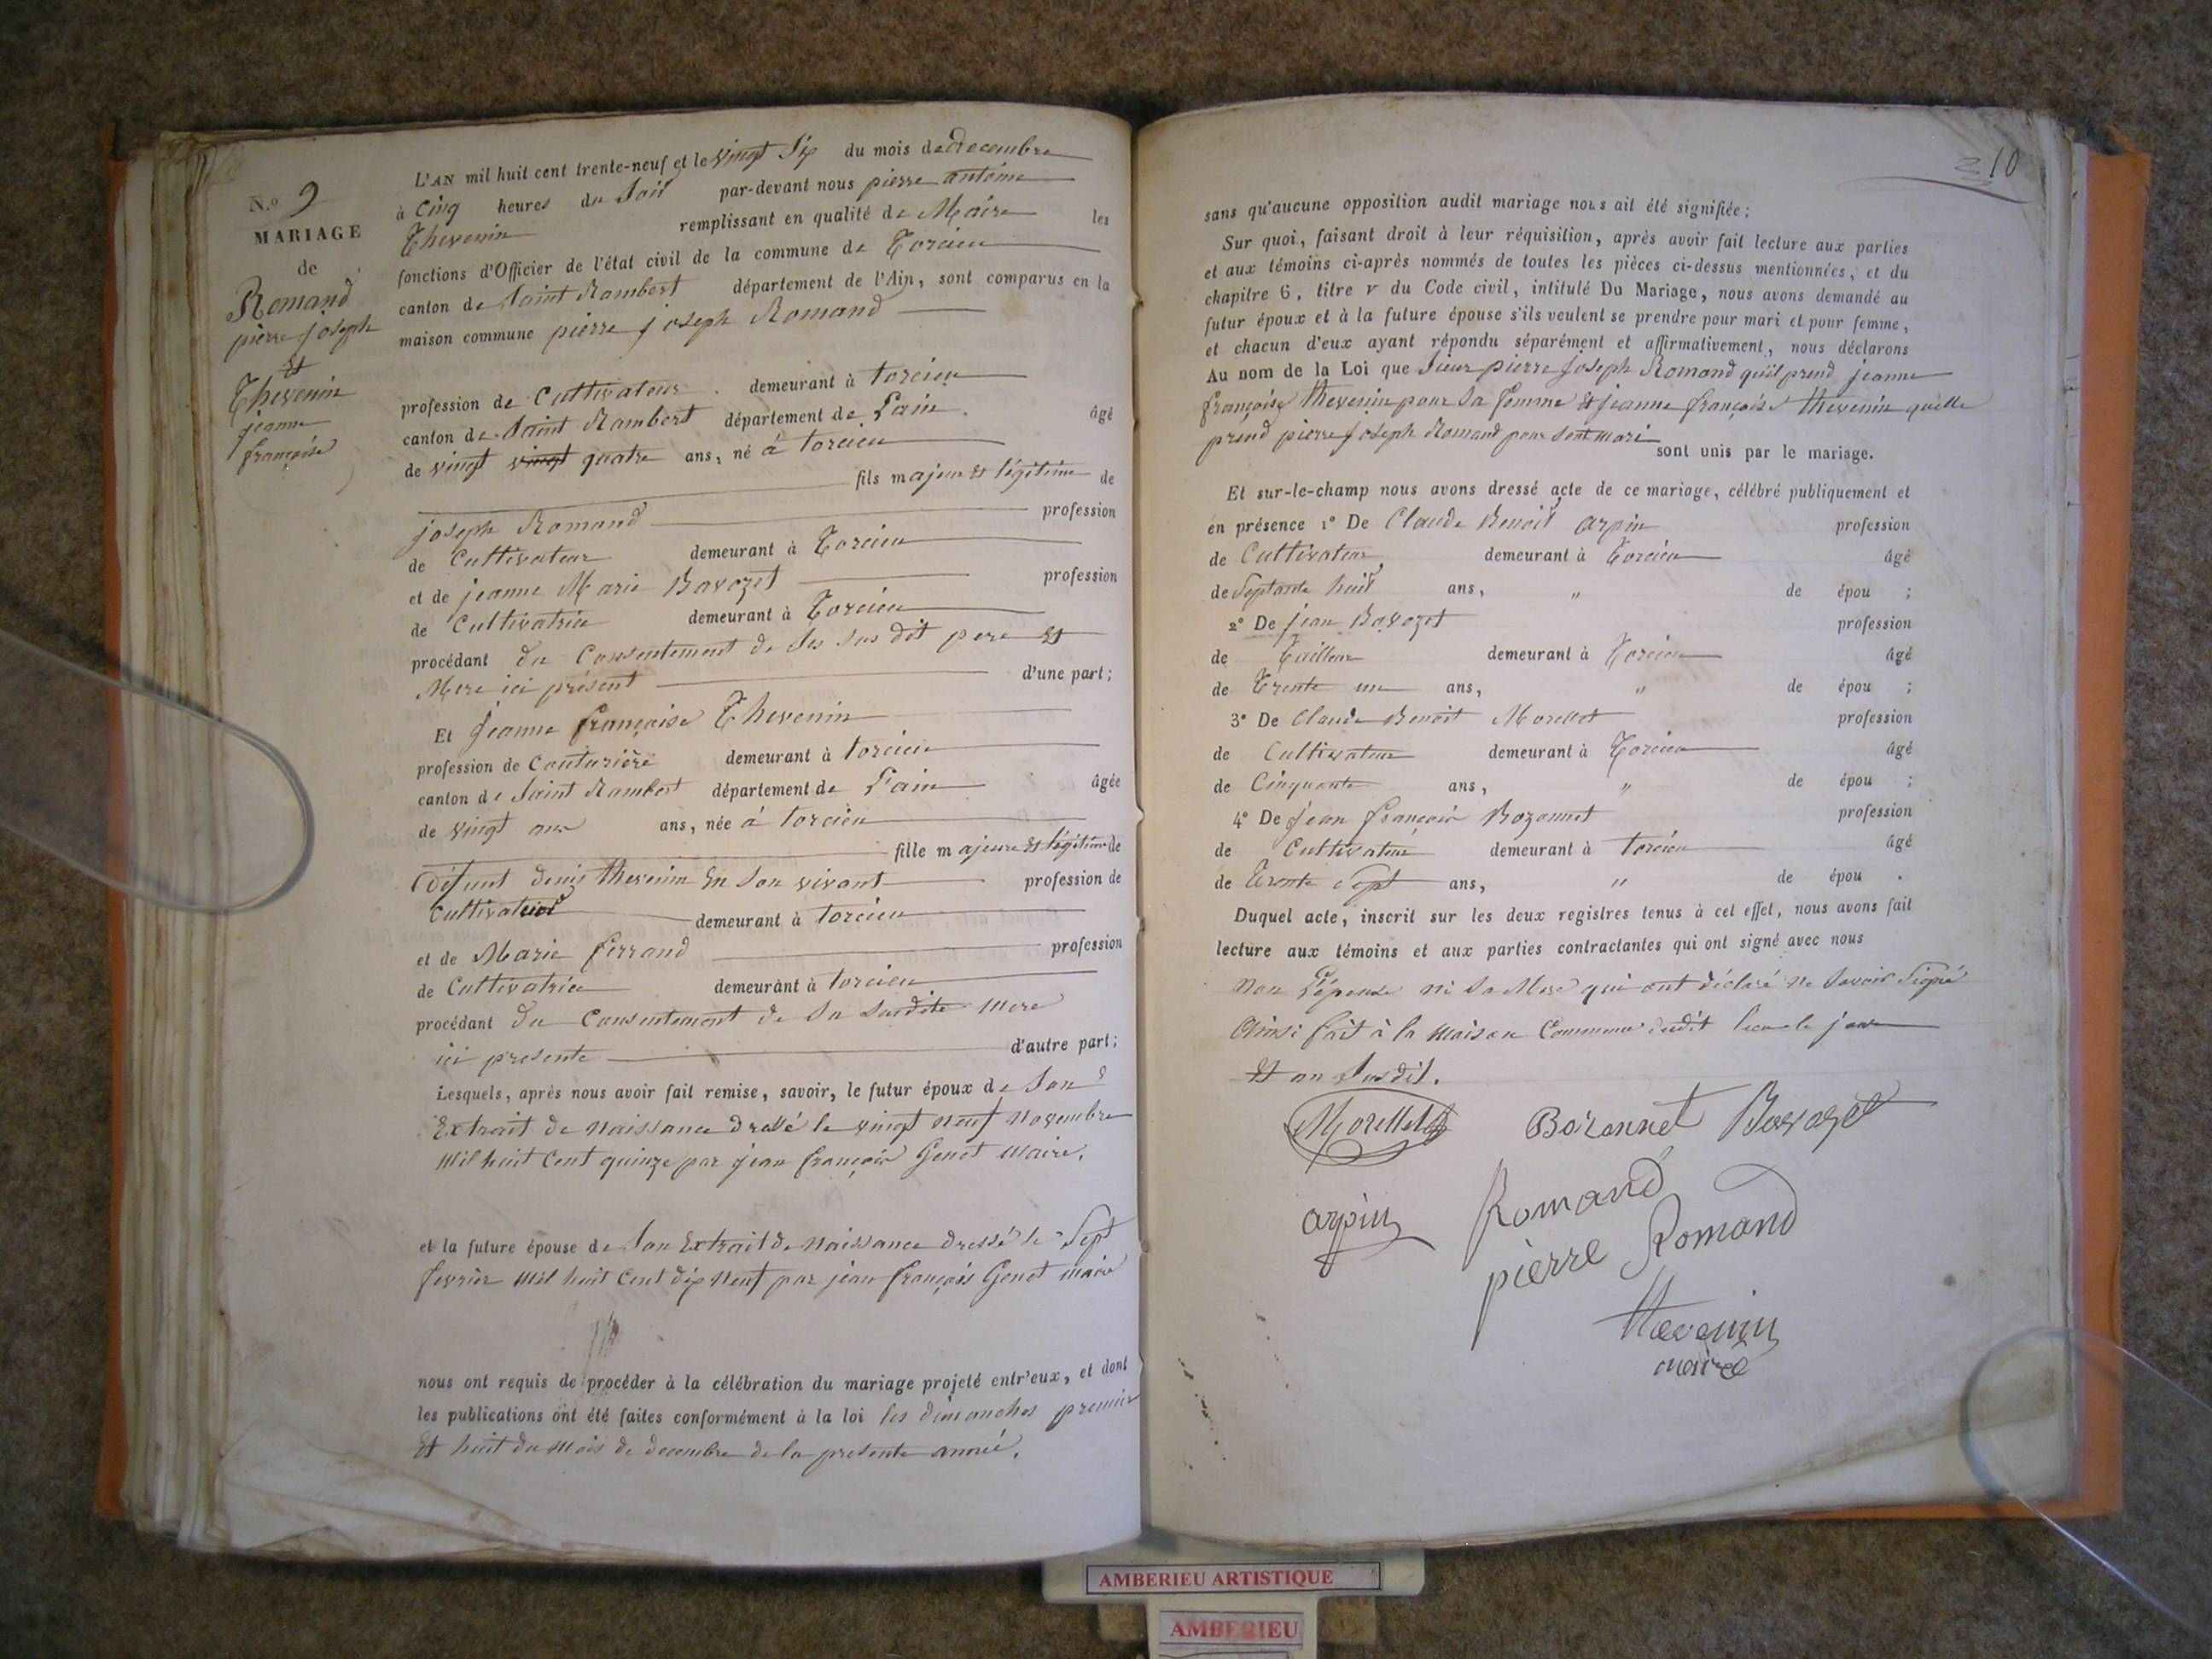 N.o 9
MARIAGE
de
Romand
pierre joseph
Et
Thevenin
jeanne
françoise
L'AN mil huit cent trente-neuf et le vingt Six du mois de decembre
à Cinq heures du Soir par-devant nous pierre antoine
Thevenin remplissant en qualité de Maire les
fonctions d'Officier de l'état civil de la commune de Torcieu
canton de Saint Rambert département de l'Ain, sont comparus en la
maison commune pierre joseph Romand
profession de Cultivateur demeurant à torcieu
canton de Saint Rambert département de L'ain. âgé
de vingt vingt quatre ans, né à torcieu
fils majeur Et légitime de
joseph Romand profession
de Cultivateur demeurant à Torcieu
et de jeanne Marie Bavozet profession
de Cultivatrice demeurant à Torcieu
procédant du Consentement de Ses Sus dit pere Et
Mere ici présent d'une part;
Et Jeanne françoise Thevenin
profession de Couturière demeurant à torcieu
canton de Saint Rambert département de L'ain âgée
de vingt ans, née à torcieu
fille majeure Et légitime de
défunt denis thevenin En Son vivant profession de
Cultivateur demeurant à torcieu
et de Marie ferrand profession
de Cultivatrice demeurant à torcieu
procédant du Consentement de Sa Susdite Mere
ici presente d'autre part;
Lesquels, après nous avoir fait remise, savoir, le futur époux de Son
Extrait de Naissance dressé le vingt Neuf Novembre
Mil huit Cent quinze par jean françois Genet Maire.
et la future épouse de Son Extrait de Naissance dressé le Sept
fevrier Mil huit Cent dix Neuf par jean françois Genet Maire
nous ont requis de procéder à la célébration du mariage projeté entr'eux, et dont
les publications ont été faites conformément à la loi les dimanches premier
Et huit du Mois de decembre de la presente année.
10
sans qu'aucune opposition audit mariage nous ait été signifiée;
Sur quoi, faisant droit à leur réquisition, après avoir fait lecture aux parties
et aux témoins ci-après nommés de toutes les pièces ci-dessus mentionnées, et du
chapitre 6, titre v du Code civil, intitulé Du Mariage, nous avons demandé au
futur époux et à la future épouse s'ils veulent se prendre pour mari et pour femme,
et chacun d'eux ayant répondu séparément et affirmativement, nous déclarons
Au nom de la Loi que Sieur pierre Joseph Romand qu'il prend jeanne
françoise thevenin pour Sa femme Et jeanne françoise thevenin quelle
prend pierre joseph Romand pour Sont Mari sont unis par le mariage.
Et sur-le-champ nous avons dressé acte de ce mariage, célébré publiquement et
en présence 1° De Claude Benoit arpin profession
de Cultivateur demeurant à Torcieu âgé
de Septante huit ans, " de épou ;
2° De jean Bavozet profession
de Tailleur demeurant à Torcieu âgé
de Trente un ans, " de épou ;
3° De Claude Benoit Morellet profession
de Cultivateur demeurant à Torcieu âgé
de Cinquante ans, " de épou ;
4° De jean françois Bozonnet profession
de Cultivateur demeurant à torcieu âgé
de Trente Sept ans, " de épou .
Duquel acte, inscrit sur les deux registres tenus à cet effet, nous avons fait
lecture aux témoins et aux parties contractantes qui ont signé avec nous
Non L'épouse Ni Sa Mere qui ont déclaré Ne Savoir Signé
Ainsi fait à la Maison Commune dudit lieu le jour
Et an Susdit.
Morellet Bozonnet Bavozet
arpin Romand
pierre Romand
thevenin
maire
AMBERIEU ARTISTIQUE
AMBERIEU